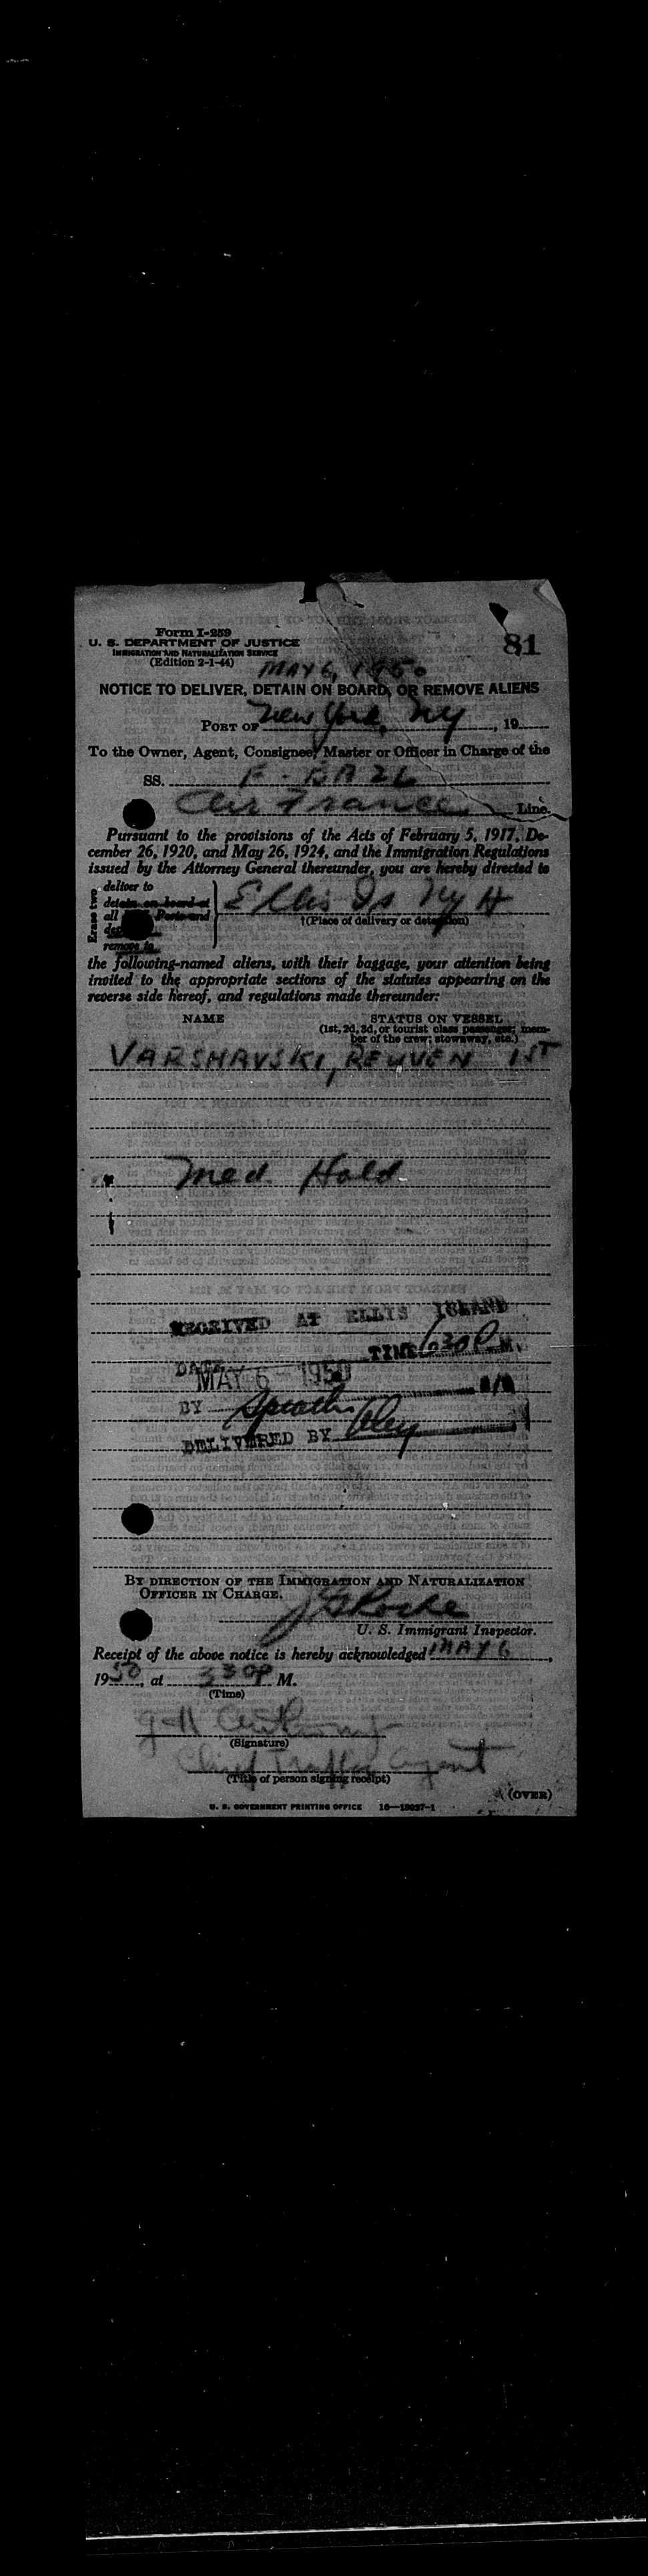 Form I-259
U. S. DEPARTMENT OF JUSTICE
IMMIGRATION AND NATURALIZATION SERVICE
(Edition 2-1-44)
81
MAY 6, 1950
NOTICE TO DELIVER, DETAIN ON BOARD, OR REMOVE ALIENS
PORT OF New York, NY, 19
To the Owner, Agent, Consignee, Master or Officer in Charge of the
SS.
Air France Line.
Pursuant to the provisions of the Acts of February 5, 1917, De-
cember 26, 1920, and May 26, 1924, and the Immigration Regulations
issued by the Attorney General thereunder, you are hereby directed to
Erase two
deliver to
detain on board at
all Ports and
remove to
Ellis Is NYH
†(Place of delivery or detention)
the following-named aliens, with their baggage, your attention being
invited to the appropriate sections of the statutes appearing on the
reverse side hereof, and regulations made thereunder:
NAME STATUS ON VESSEL
(1st, 2d, 3d, or tourist class passenger; mem-
ber of the crew; stowaway, etc.)
VARSHAVSKI, REUVEN 1ST
Med. Hold
RECEIVED AT ELLIS ISLAND
TIME 630 P. M.
DATE MAY 6 - 1950
BY
DELIVERED BY
BY DIRECTION OF THE IMMIGRATION AND NATURALIZATION
OFFICER IN CHARGE.
U. S. Immigrant Inspector.
Receipt of the above notice is hereby acknowledged MAY 6,
1950, at 530P M.
(Time)
(Signature)
Chief Traffic Agent
(Title of person signing receipt)
(OVER)
U. S. GOVERNMENT PRINTING OFFICE 16—13027-1